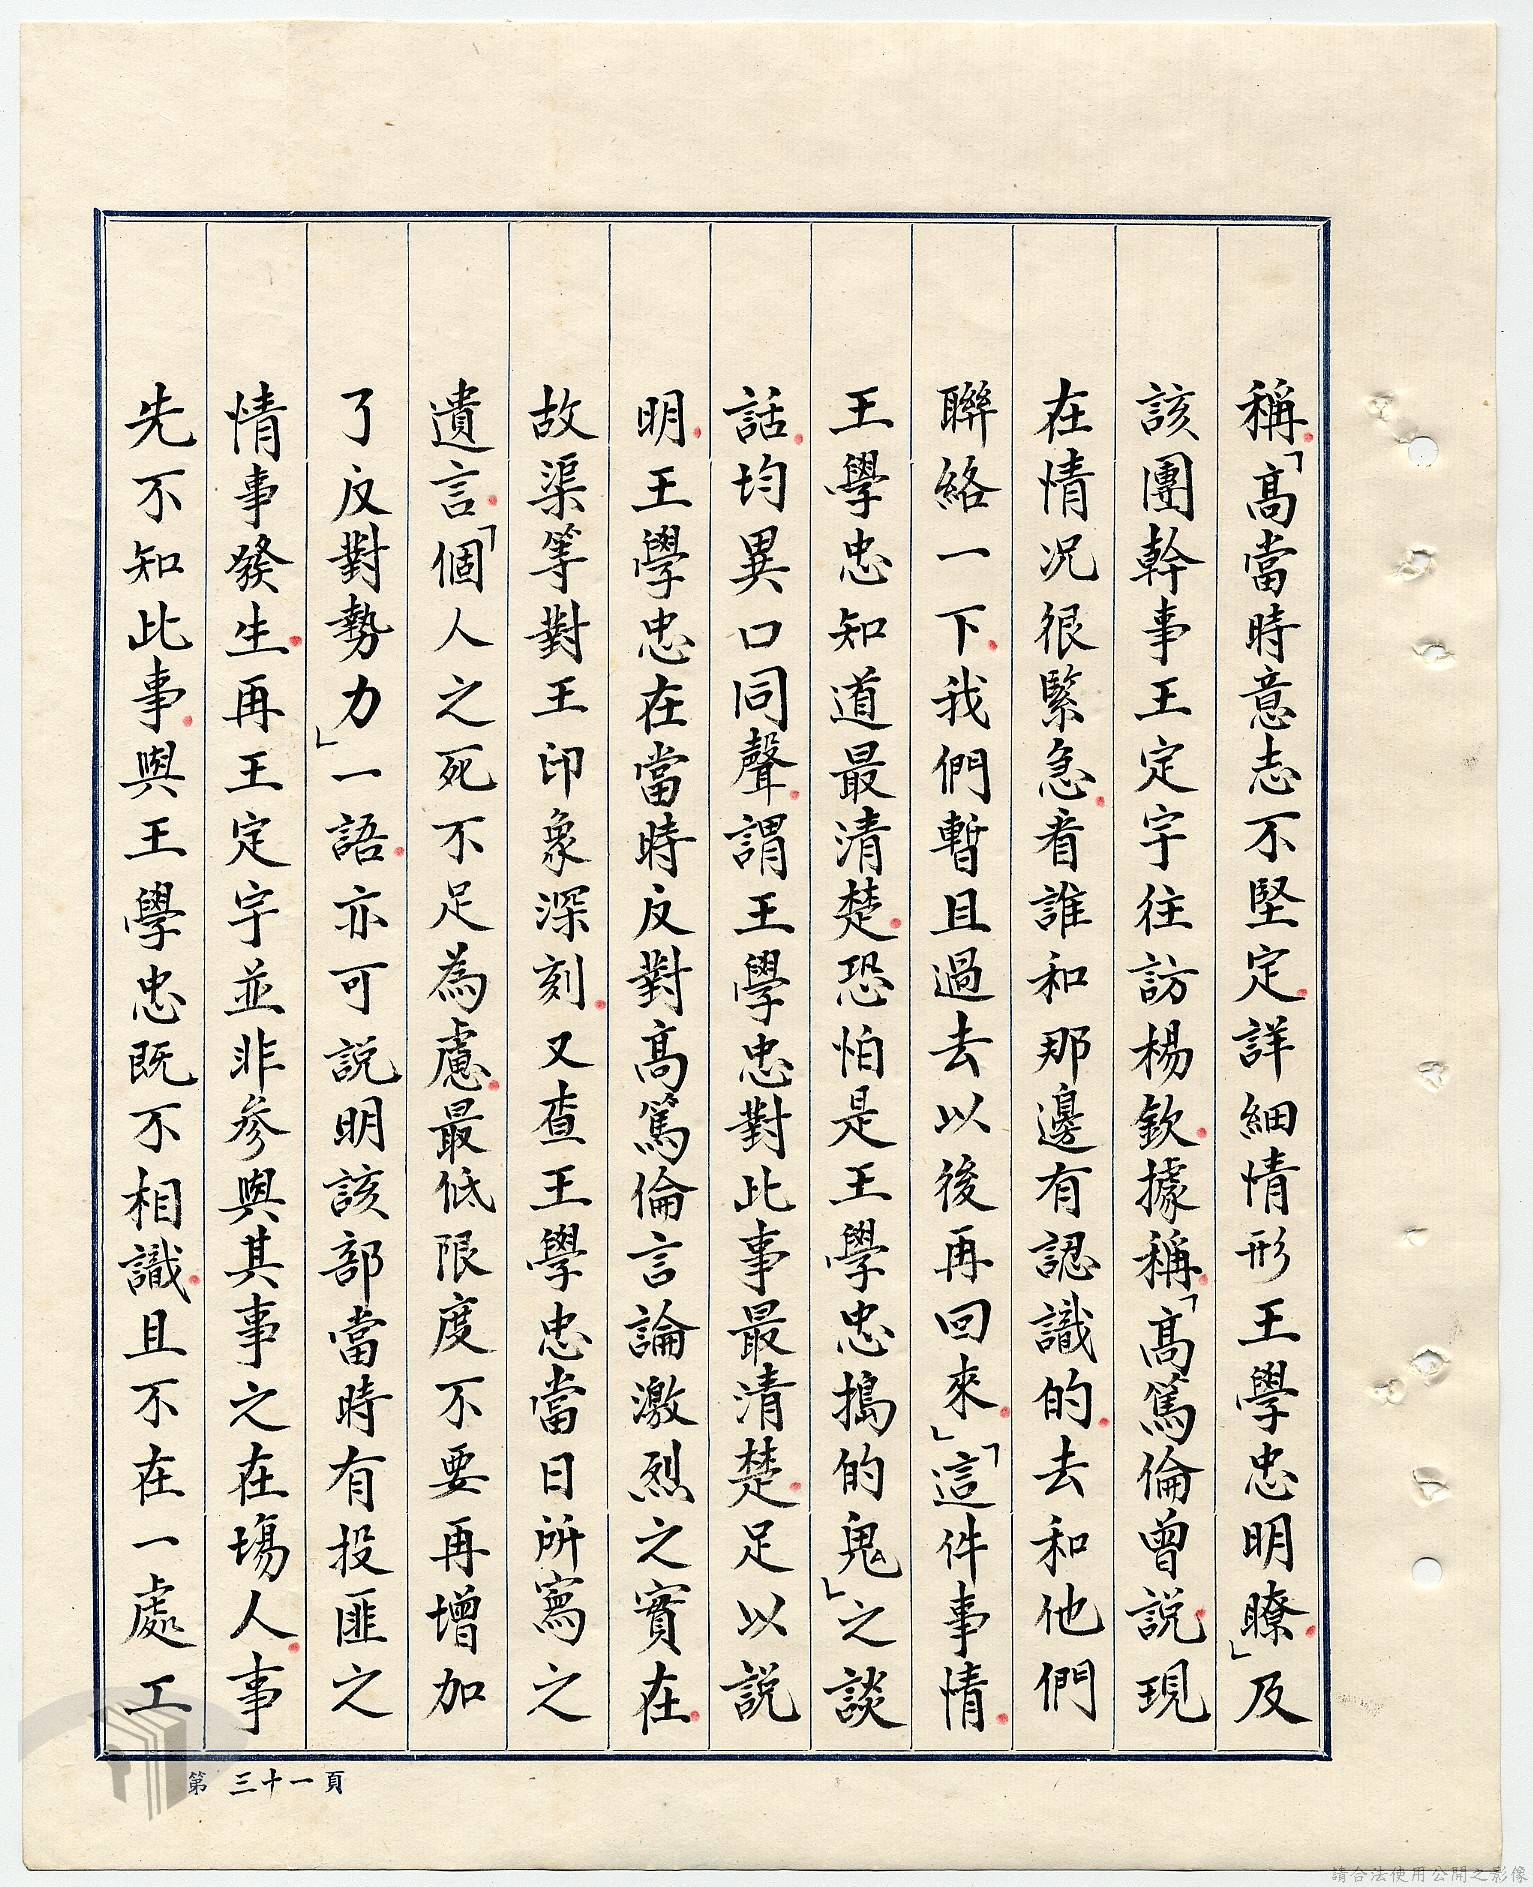 稱.「高當時意志不堅定.詳細情形王學忠明瞭.」及
該團幹事王定宇往訪楊欽.據稱.「高篤倫曾說.現
在情況很緊急.看誰和那邊有認識的.去和他們
聯絡一下.我們暫且過去以後再回來.」「這件事情.
王學忠知道最清楚.恐怕是王學忠搗的鬼」之談
話.均異口同聲.謂王學忠對此事最清楚.足以說
明.王學忠在當時反對高篤倫言論激烈之實在.
故渠等對王印象深刻.又查王學忠當日所寫之
遺言.「個人之死不足為慮.最低限度不要再增加
了反對勢力」一語.亦可說明該部當時有投匪之
情事發生.再王定宇並非參與其事之在場人.事
先不知此事.與王學忠既不相識.且不在一處工
第三十一頁
請合法使用公開之影像